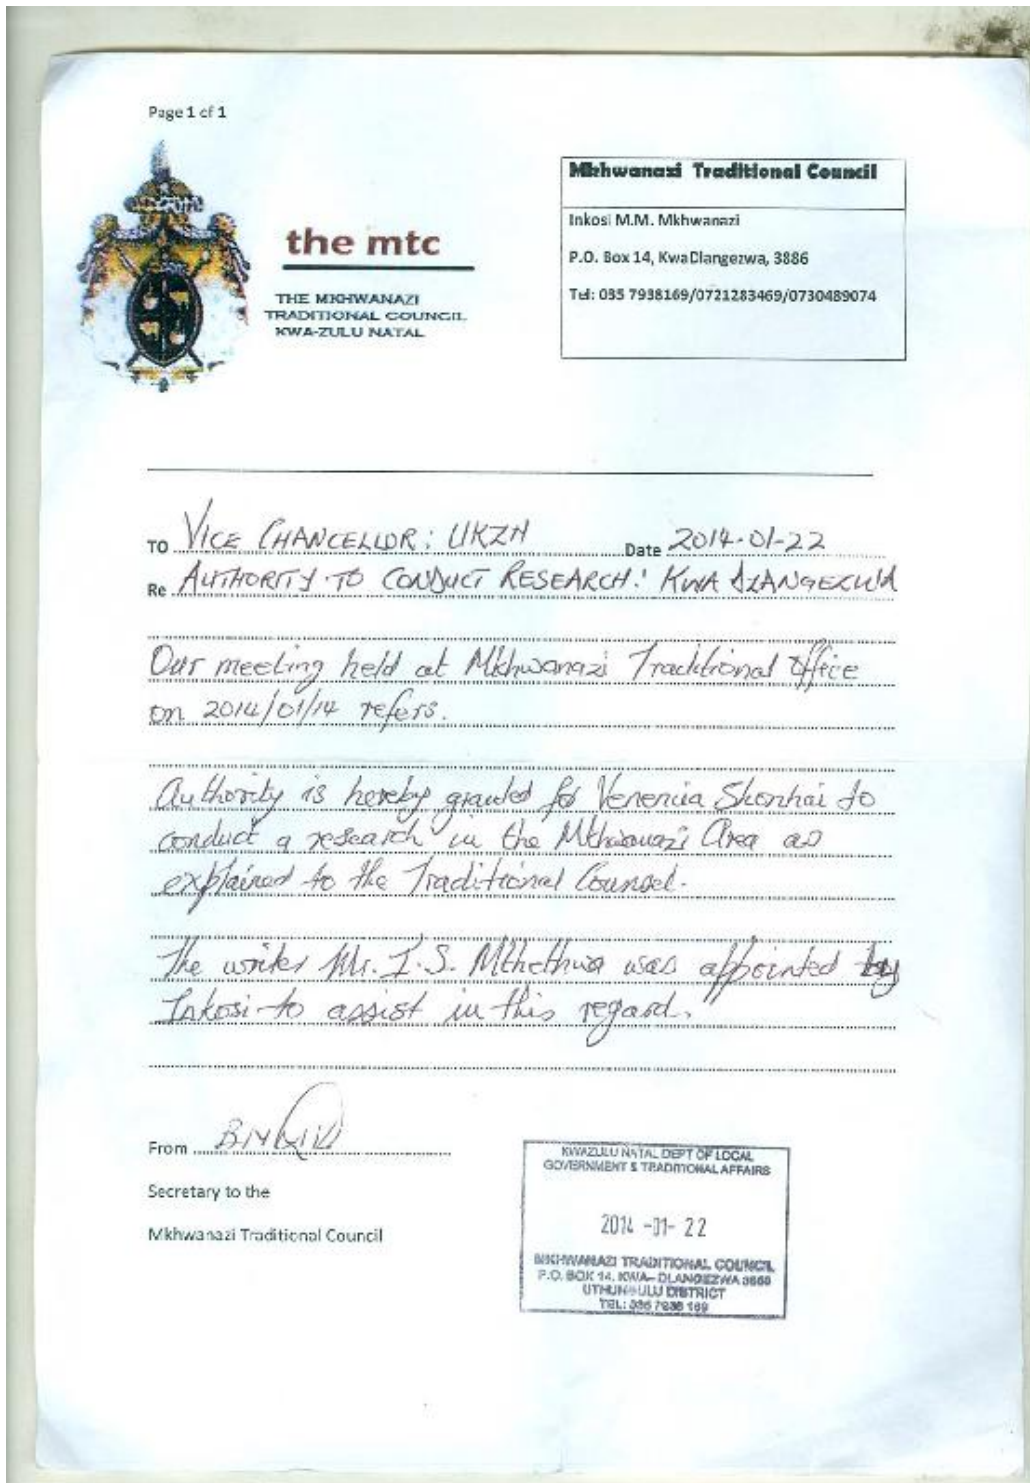 Page 1 of 1
the mtc
THE MKHWANAZI
TRADITIONAL COUNCIL
KWA-ZULU NATAL
Mkhwanazi Traditional Council
Inkosi M.M. Mkhwanazi
P.O. Box 14, KwaDlangezwa, 3886
Tel: 035 7938169/0721283469/0730489074
TO VICE CHANCELLOR: UKZN Date 2014-01-22
Re AUTHORITY TO CONDUCT RESEARCH: KWA DLANGEZWA
Our meeting held at Mkhwanazi Traditional Office
on 2014/01/14 refers.
Authority is hereby granted for Venencia Shonhai to
conduct a research in the Mkhwanazi Area as
explained to the Traditional Counsel.
The writer Mr. I.S. Mthethwa was appointed by
Inkosi to assist in this regard.
From
Secretary to the
Mkhwanazi Traditional Council
KWAZULU NATAL DEPT OF LOCAL
GOVERNMENT & TRADITIONAL AFFAIRS
2014 -01- 22
MKHWANAZI TRADITIONAL COUNCIL
P.O. BOX 14, KWA-DLANGEZWA
UTHUNGULU DISTRICT
TEL: 035 7938 169